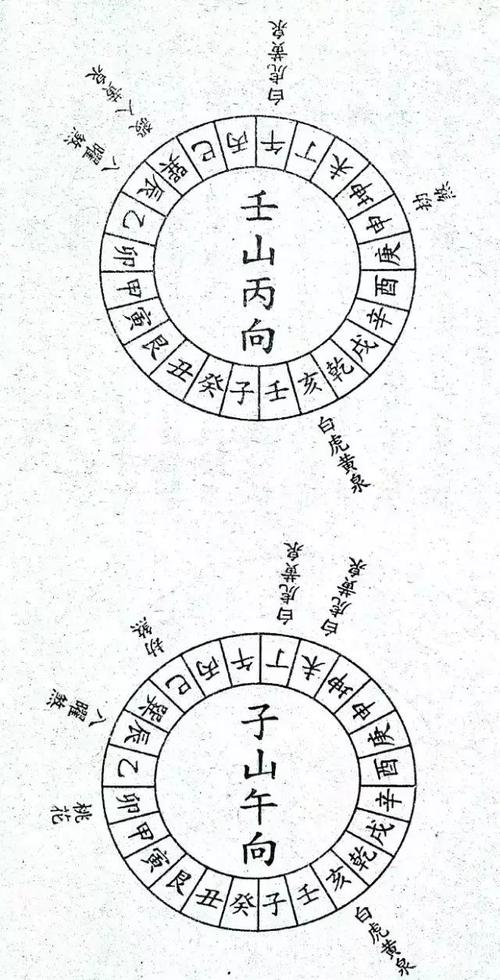 壬山丙向
午
丁
未
坤
申
庚
酉
辛
戌
乾
亥
壬
子
癸
丑
艮
寅
甲
卯
乙
辰
巽
巳
丙
白虎黄泉
劫煞
白虎黄泉
八曜煞
殺人黄泉
子山午向
丁
未
坤
申
庚
酉
辛
戌
乾
亥
壬
子
癸
丑
艮
寅
甲
卯
乙
辰
巽
巳
丙
午
白虎黄泉
白虎黄泉
白虎黄泉
桃花
八曜煞
劫煞